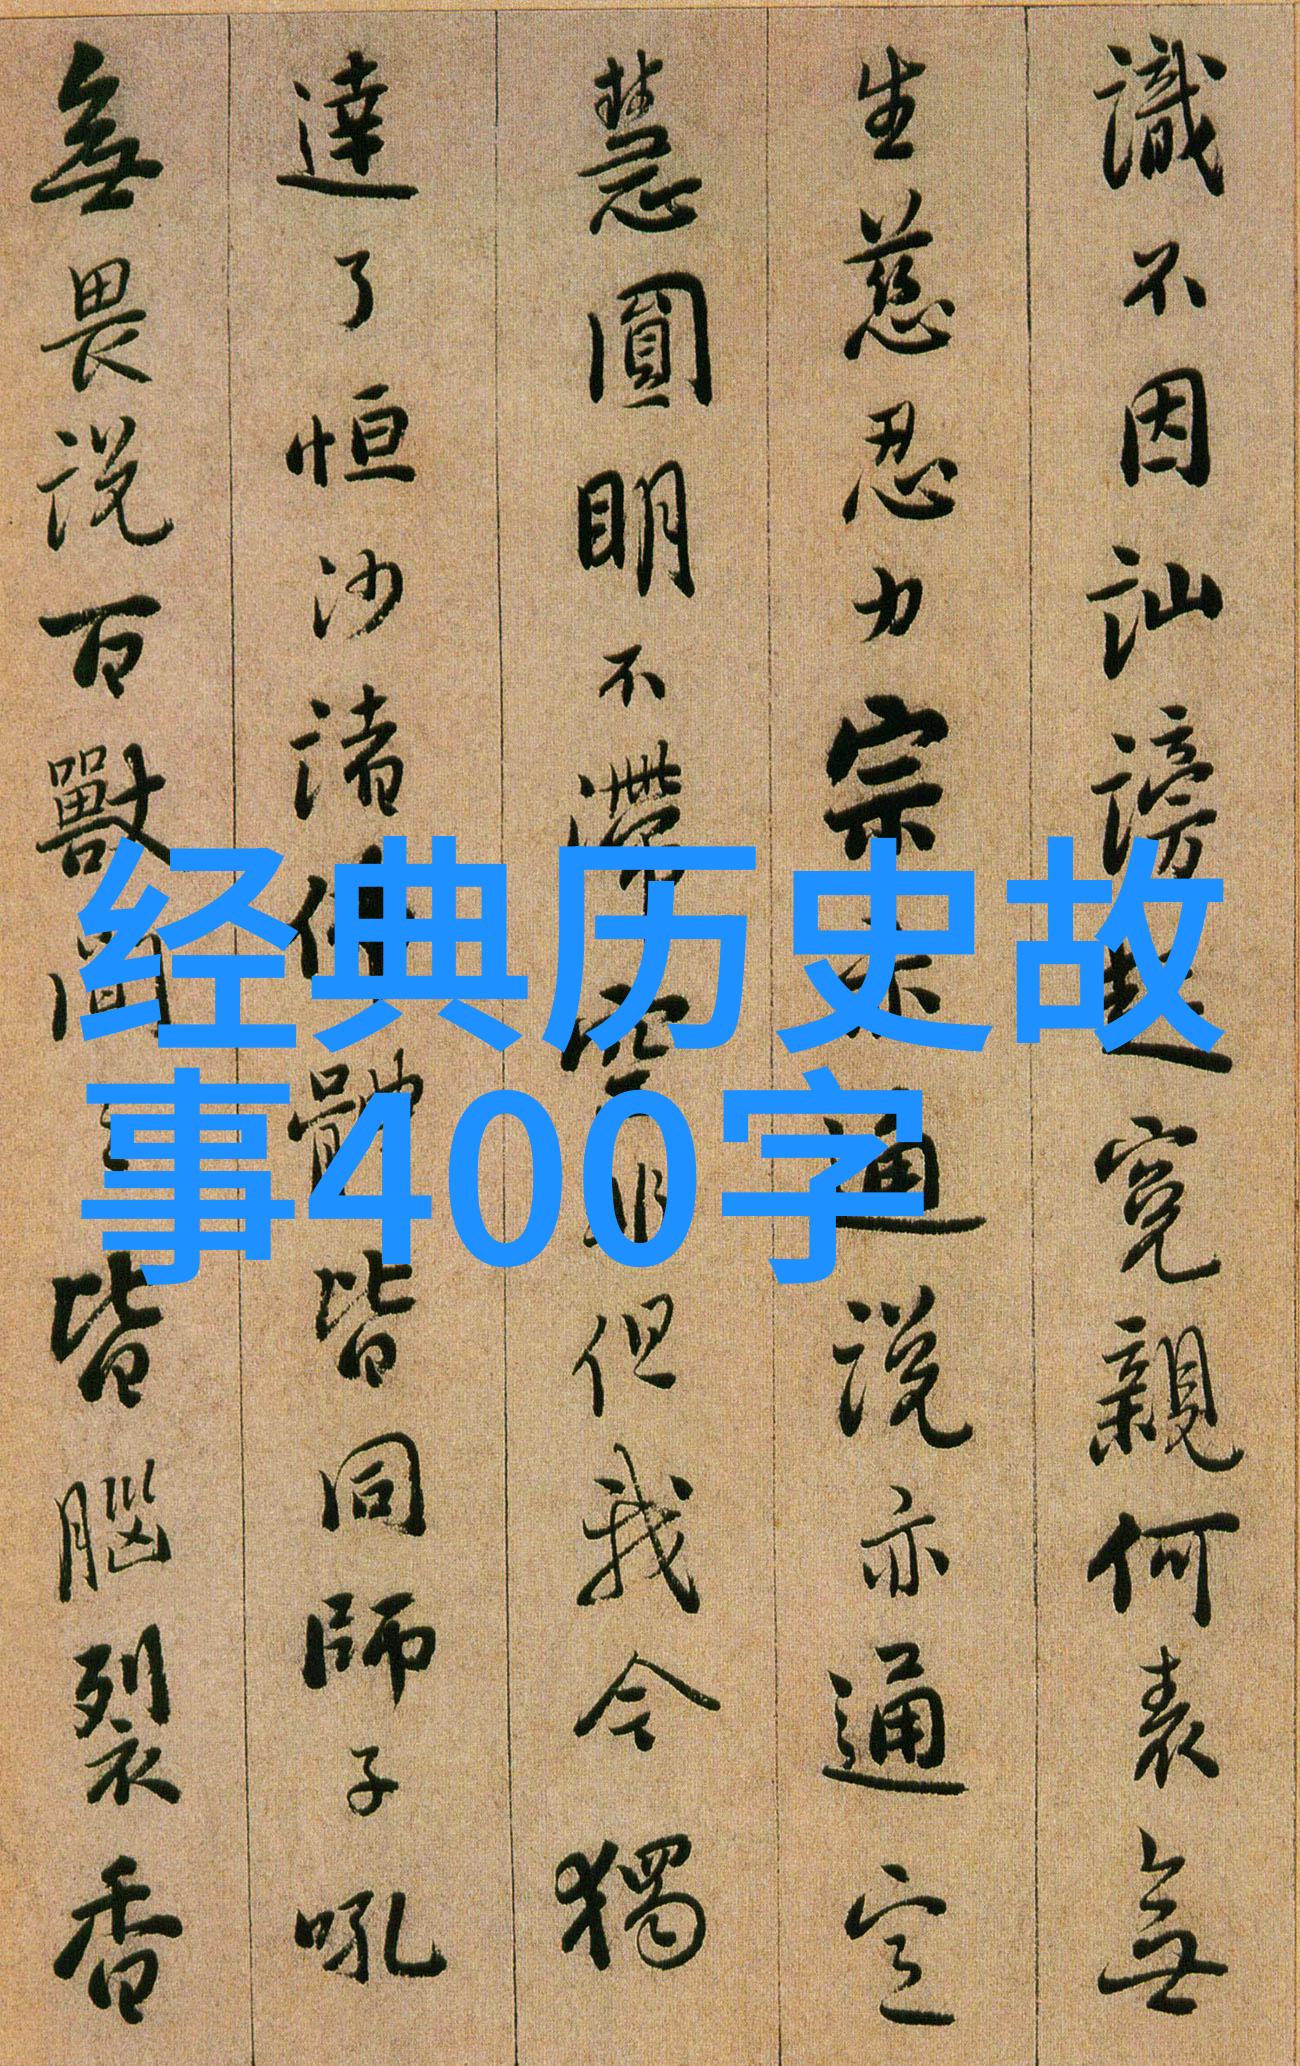 識不因訕謗起寃親何表無
生慈忍力宗亦通說亦通定
慧圓明不滯空非但我今獨
達了恒沙諸佛體皆同師子吼
無畏說百獸聞皆腦裂香
经典历史故
事400字